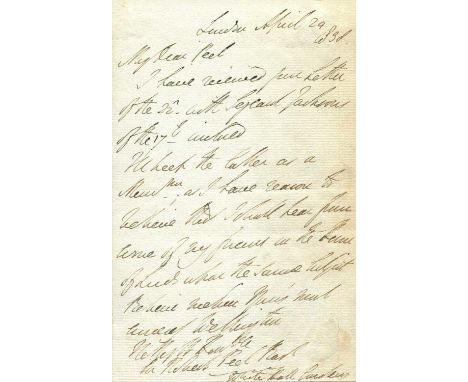 London April 29
1838
My Dear Peel
I have received your Letter
of the 22d. with Serjeant Jackson's
of the 17th inclosed
I'll keep the latter as a
Memn. as I have reason to
believe that I shall hear from
some of my friends in the House
of Lords upon the same subject
Believe me
Wellington
The Right Honble
Sir Robert Peel Bart
White Hall Gardens